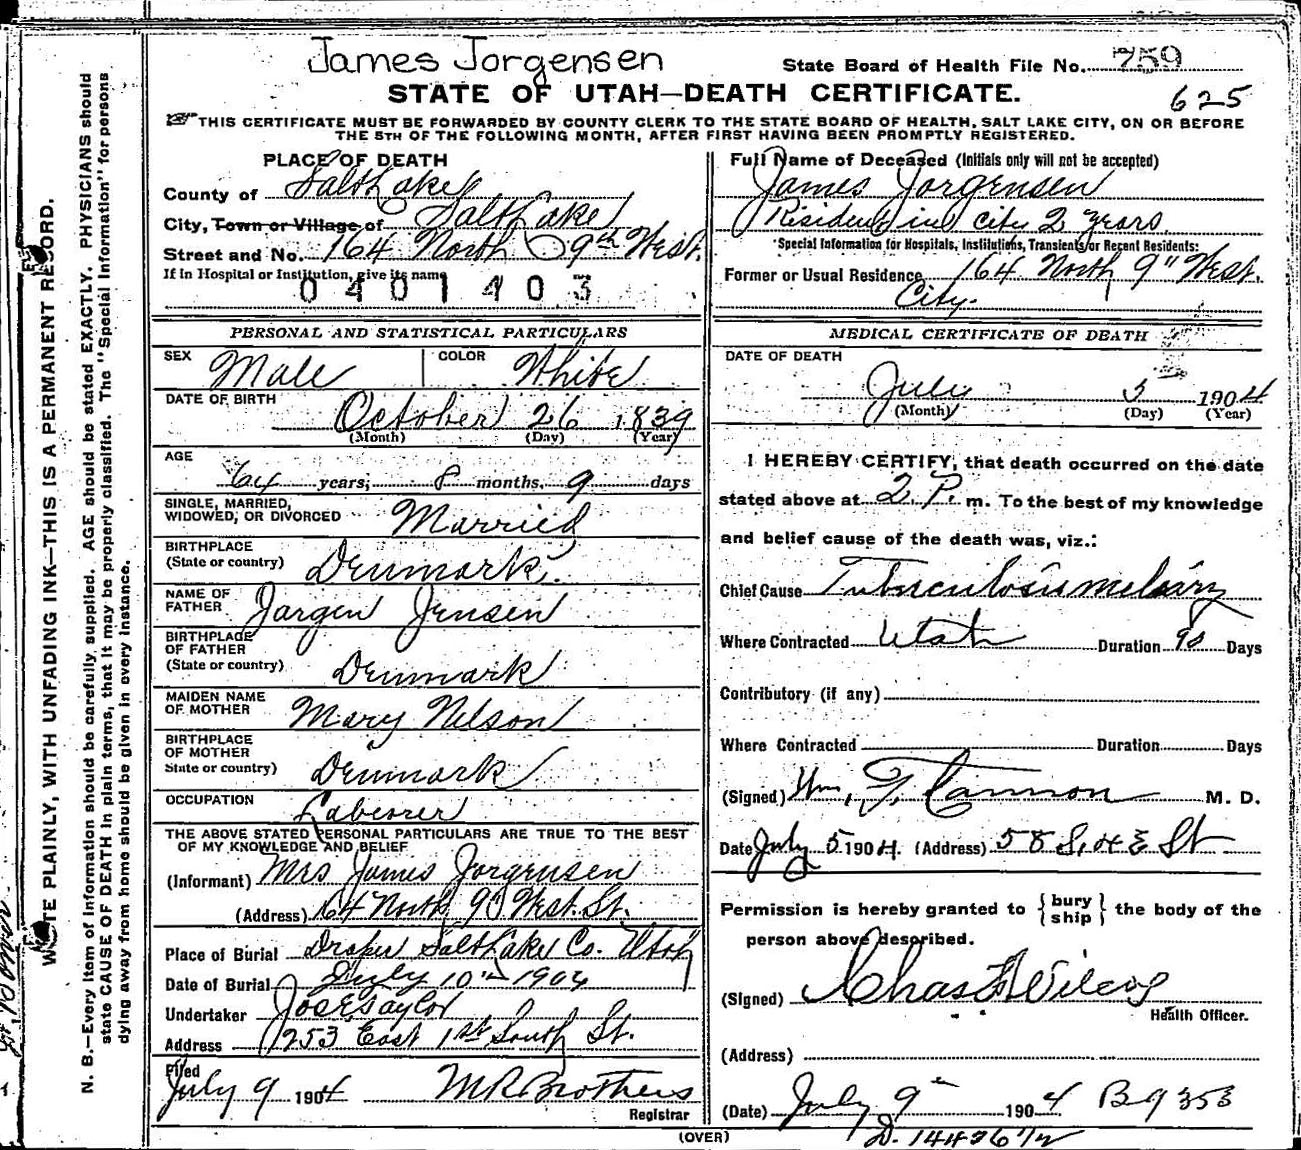 James Jorgensen
State Board of Health File No. 759
STATE OF UTAH—DEATH CERTIFICATE.
625
THIS CERTIFICATE MUST BE FORWARDED BY COUNTY CLERK TO THE STATE BOARD OF HEALTH, SALT LAKE CITY, ON OR BEFORE
THE 5TH OF THE FOLLOWING MONTH, AFTER FIRST HAVING BEEN PROMPTLY REGISTERED.
PLACE OF DEATH
County of Salt Lake
City, Town or Village of Salt Lake
Street and No. 164 North 9th West.
If in Hospital or Institution, give its name
0401403
Full Name of Deceased (Initials only will not be accepted)
James Jorgensen
Resident in city 2 years.
Special Information for Hospitals, Institutions, Transients or Recent Residents:
Former or Usual Residence 164 North 9" West.
City.
PERSONAL AND STATISTICAL PARTICULARS
SEX Male
COLOR White
DATE OF BIRTH
October 26 1839
(Month) (Day) (Year)
AGE
64 years, 8 months, 9 days
SINGLE, MARRIED,
WIDOWED, OR DIVORCED Married
BIRTHPLACE
(State or country) Denmark.
NAME OF
FATHER Jorgen Jensen
BIRTHPLACE
OF FATHER
(State or country) Denmark
MAIDEN NAME
OF MOTHER Mary Nelson
BIRTHPLACE
OF MOTHER
State or country) Denmark
OCCUPATION Labeorer
THE ABOVE STATED PERSONAL PARTICULARS ARE TRUE TO THE BEST
OF MY KNOWLEDGE AND BELIEF
(Informant) Mrs James Jorgensen
(Address) 164 North 9" West. St.
Place of Burial Draper Salt Lake Co. Utah
Date of Burial July 10th 1904
Undertaker Jos E Taylor
Address 253 East 1st South St.
Filed
July 9 1904 M R Brothers
Registrar
MEDICAL CERTIFICATE OF DEATH
DATE OF DEATH
July 5 1904
(Month) (Day) (Year)
I HEREBY CERTIFY, that death occurred on the date
stated above at 2 P. m. To the best of my knowledge
and belief cause of the death was, viz.:
Chief Cause Tuberculosis miliary
Where Contracted Utah Duration 90 Days
Contributory (if any)
Where Contracted Duration Days
(Signed) Wm. F. Cannon M. D.
Date July 5 1904. (Address) 58 S. 4 E St
Permission is hereby granted to {bury ship} the body of the
person above described.
(Signed) Chas F Wilcox
Health Officer.
(Address)
(Date) July 9 1904 B9353
D. 14426 1/2
(OVER)
WRITE PLAINLY, WITH UNFADING INK—THIS IS A PERMANENT RECORD.
N. B.—Every item of information should be carefully supplied. AGE should be stated EXACTLY. PHYSICIANS should
state CAUSE OF DEATH in plain terms, that it may be properly classified. The "Special Information" for persons
dying away from home should be given in every instance.